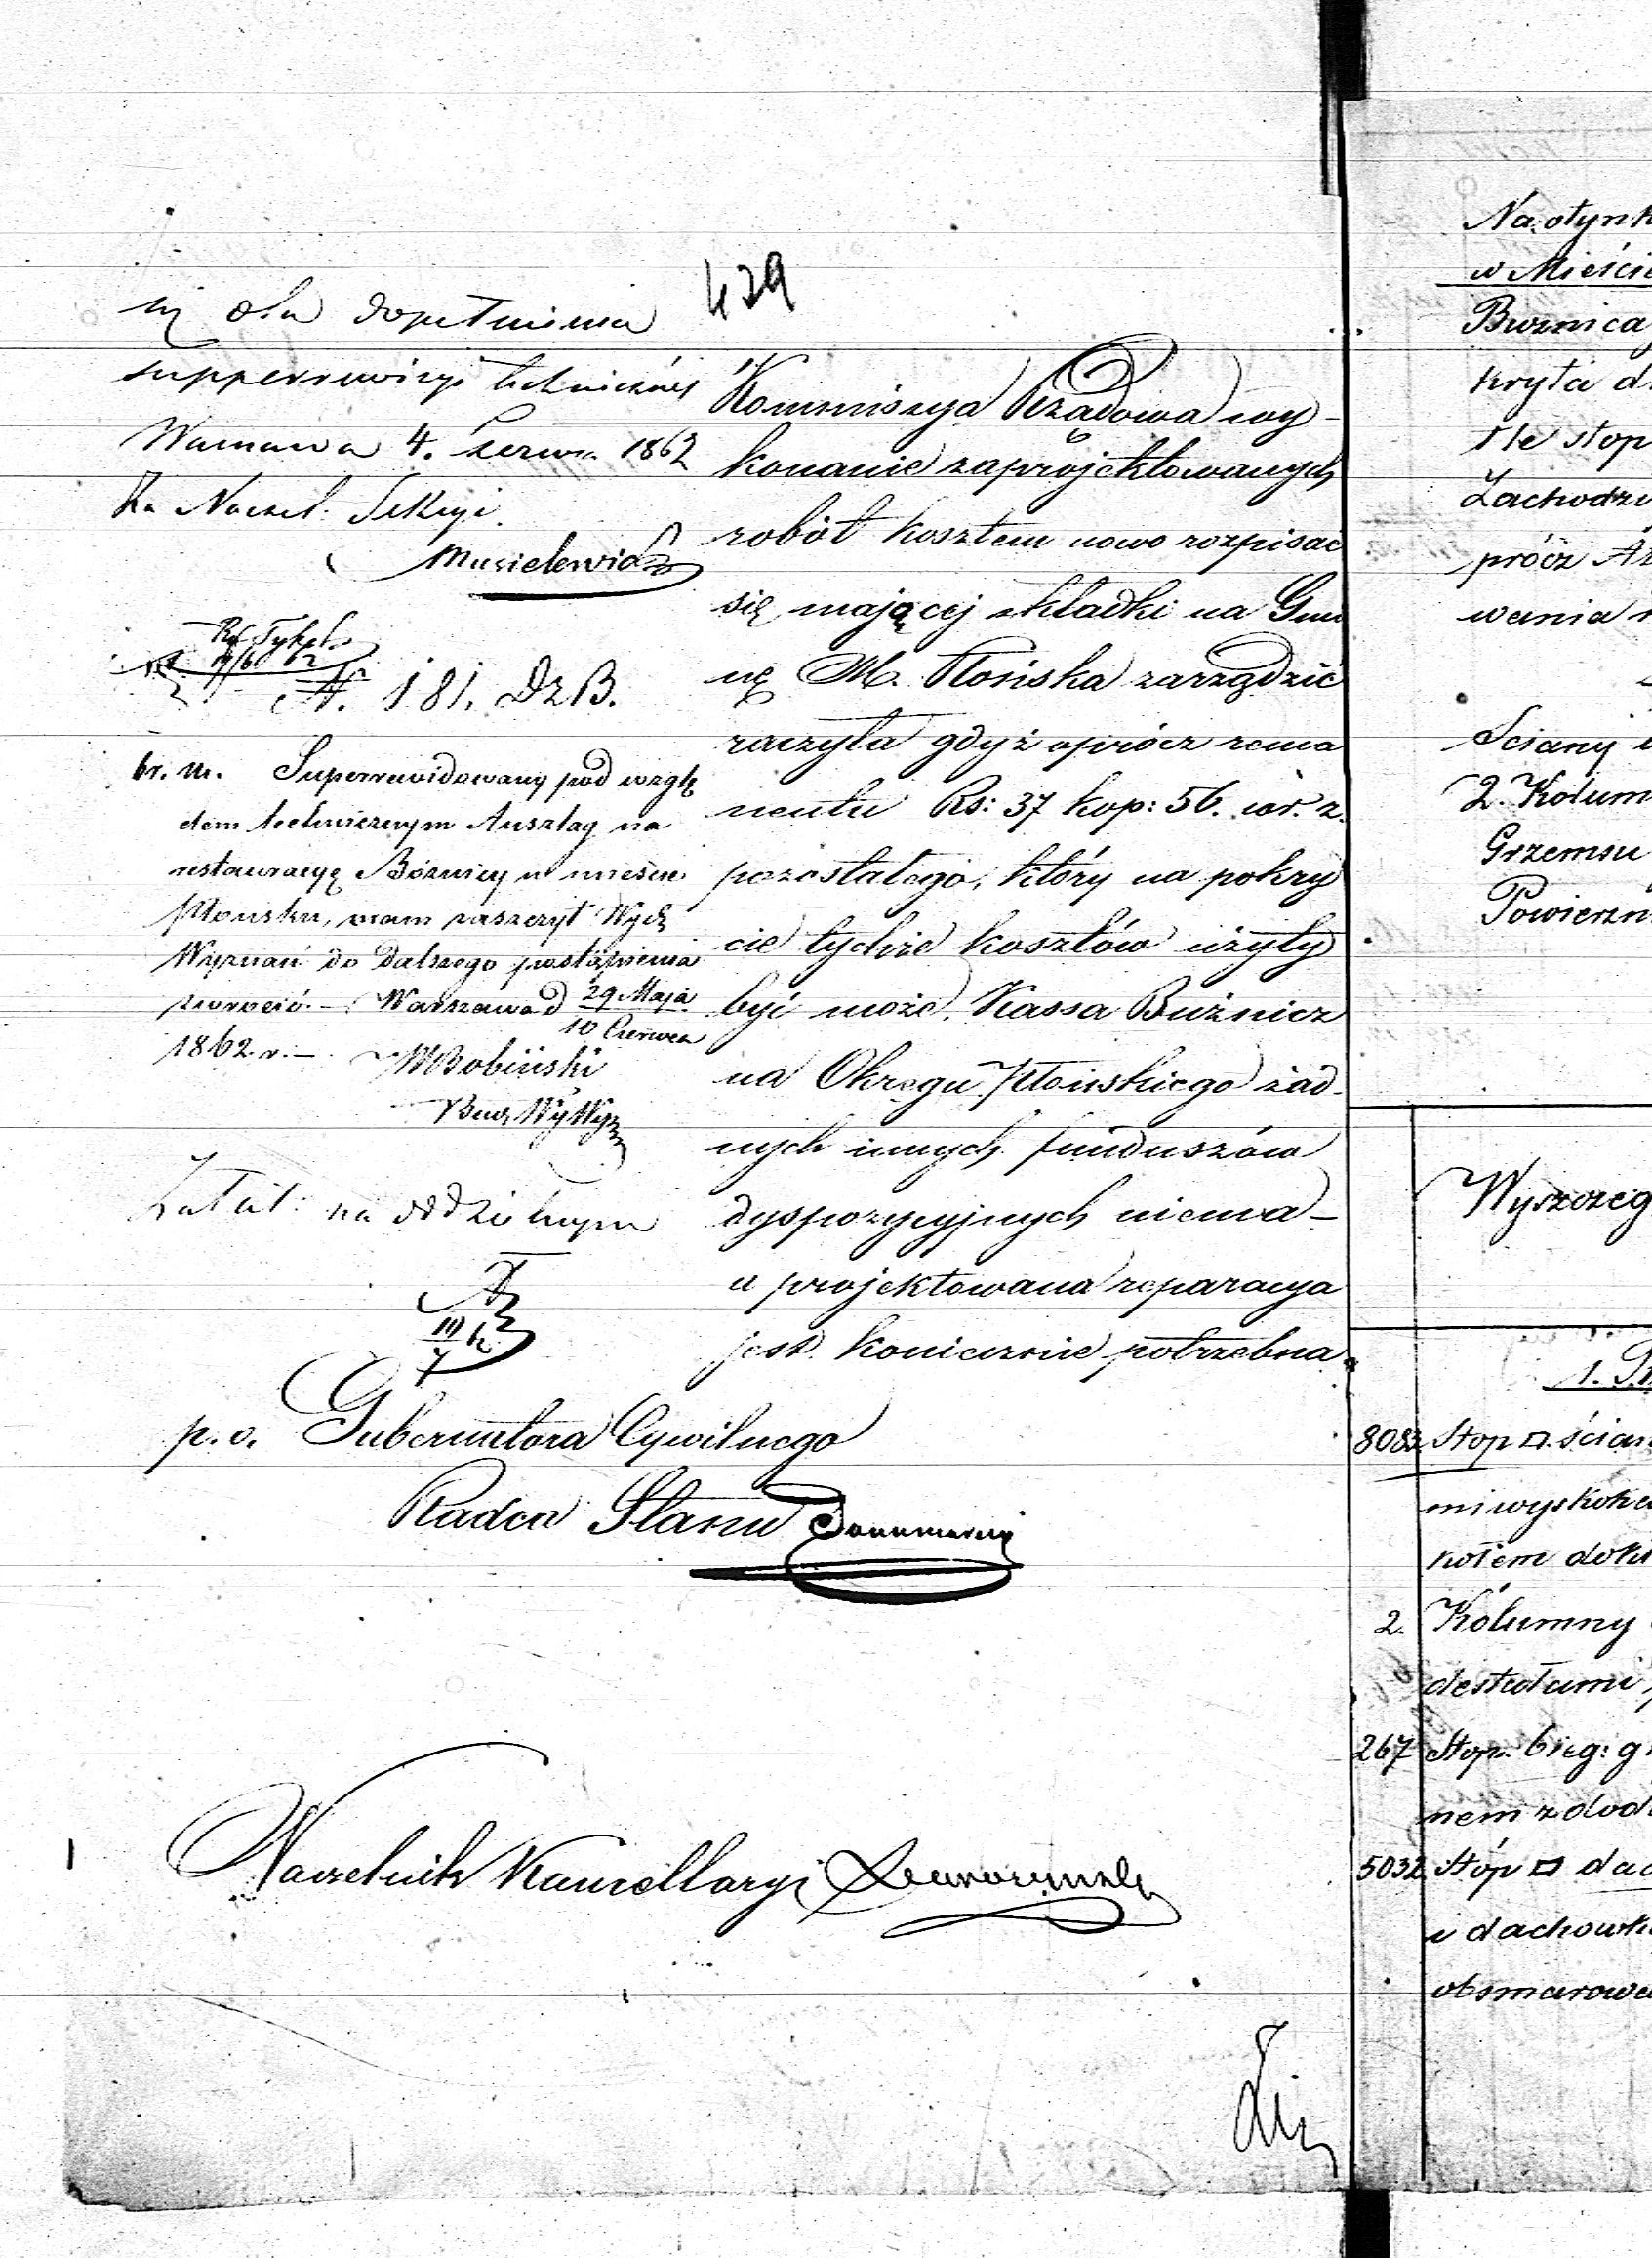 429
nej dla dopełnienia
superrewizyi technicznej
Warszawa 4. Czerwca 1862
Za Naczel. Sekcyi
Musielewicz
N. 181. Dz.B.
br. m. Superrewidowany pod wzglę
dem technicznym Anszlag na
restauracyę Bóżnicy w mieście
Płońsku, mam zaszczyt Wydz
Wyznań do dalszego postąpienia
zwrócić. — Warszawa d 29 Maja
10 Czerwca
1862 r. —
MBobiński
Załat: na oddzielnym
Kommissya Rządowa wy-
konanie zaprojektowanych
robót kosztem nowo rozpisać
się mającej składki na Gmi
nę M. Płońska zarządzić
raczyła gdyż oprócz rema
nentu Rs: 37 kop: 56. wr. z.
pozostałego, który na pokry
cie tychże kosztów użyty
być może, Kassa Bużnicz
na Okręgu Płońskiego żad-
nych innych funduszów
dyspozycyjnych niema —
a projektowana reparacya
jest koniecznie potrzebna.
p. o. Gubernatora Cywilnego
Radca Stanu
Naczelnik Kancellaryi
Na otynk
w Mieści
Bużnica
kryta d
Ile stop
Zachodzi
prócz
wania
Ściany
2. Kolum
Grzemsu
Powierzn
Wyszczeg
8083 Stop □. ścian
mi wyskok
kołem
2. Kolumny
destałami
267 Stop. bieg: g
nem z dod
5032 Stóp □ dac
i dachowk
obsmarowa